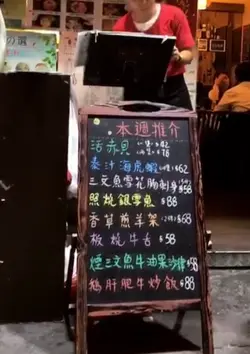 本週推介
活赤貝
泰汁海虎蝦 $62
三文魚雪花腩刺身 $58
照燒銀雪魚 $88
香草煎羊架 $68
板燒牛舌 $58
煙三文魚牛油果沙律 $58
鵝肝肥牛炒飯 $88